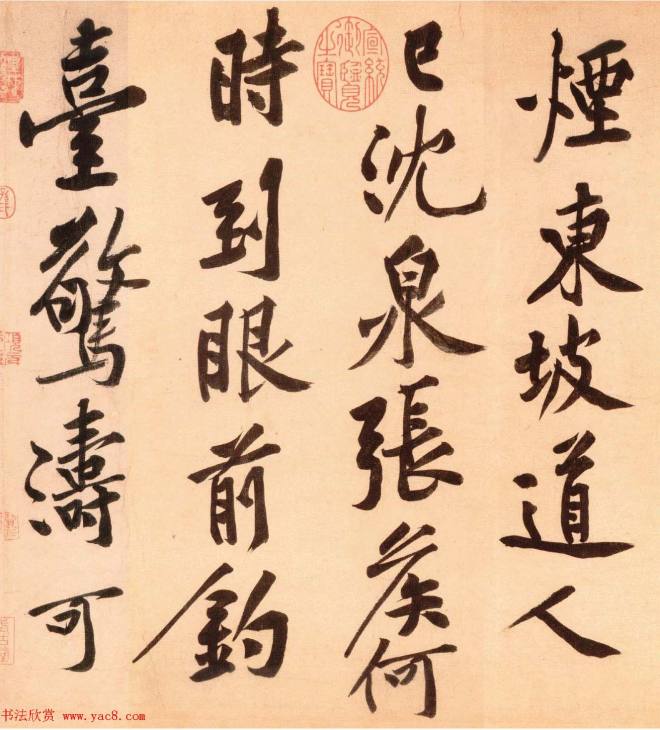 煙東坡道人
已沈泉張侯何
時到眼前釣
臺驚濤可
宣統御覽之寶
书法欣赏 www.yac8.com